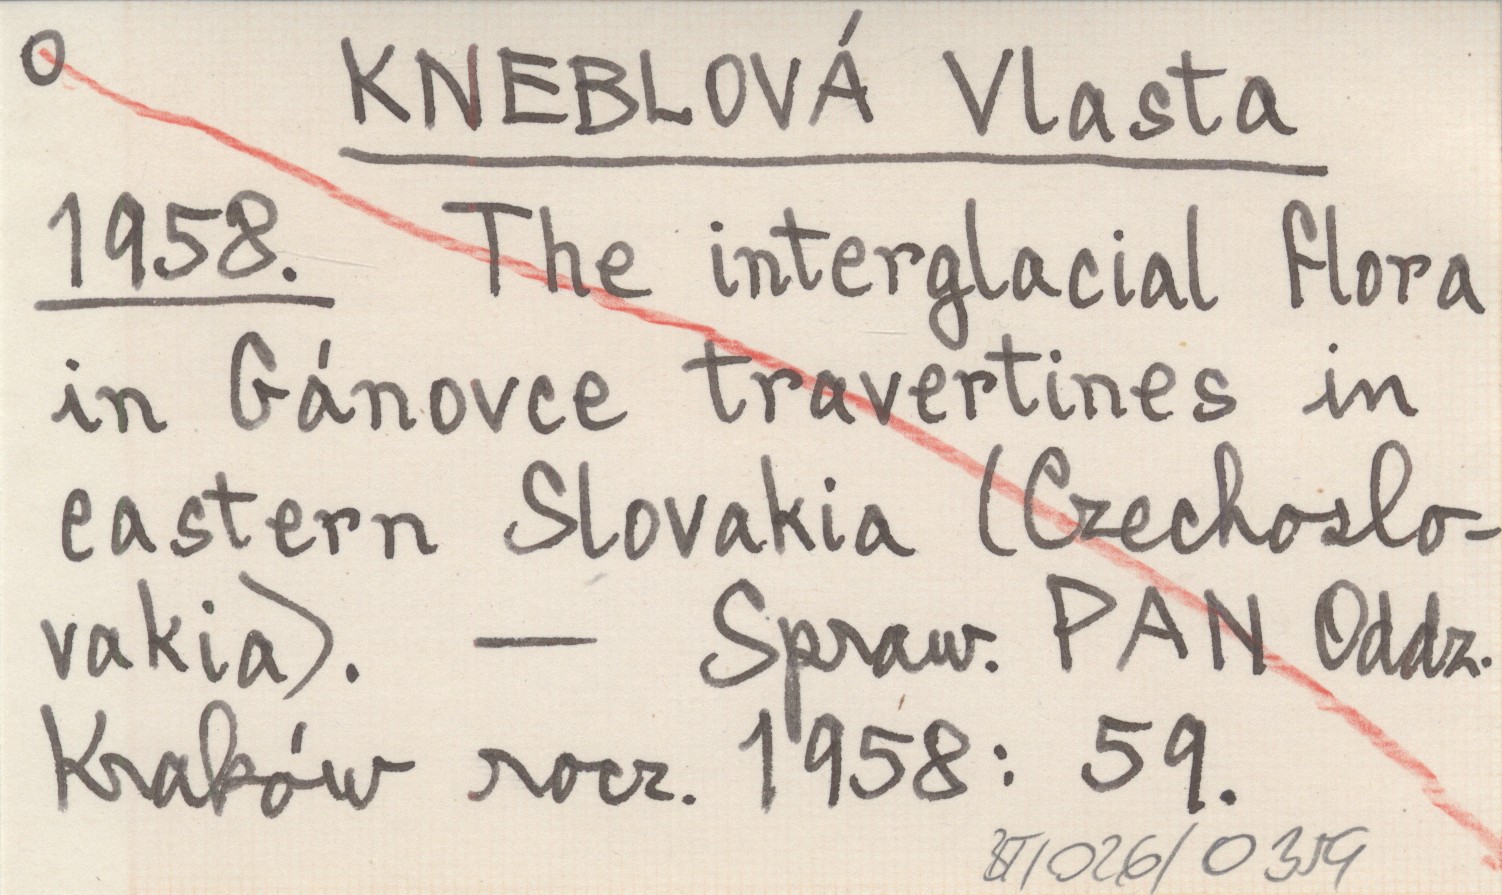 O KNEBLOVÁ Vlasta
1958. The interglacial flora
in Gánovce travertines in
eastern Slovakia (Czechoslo-
vakia). — Spraw. PAN Oddz.
Kraków rocz. 1958: 59.
/026/0359